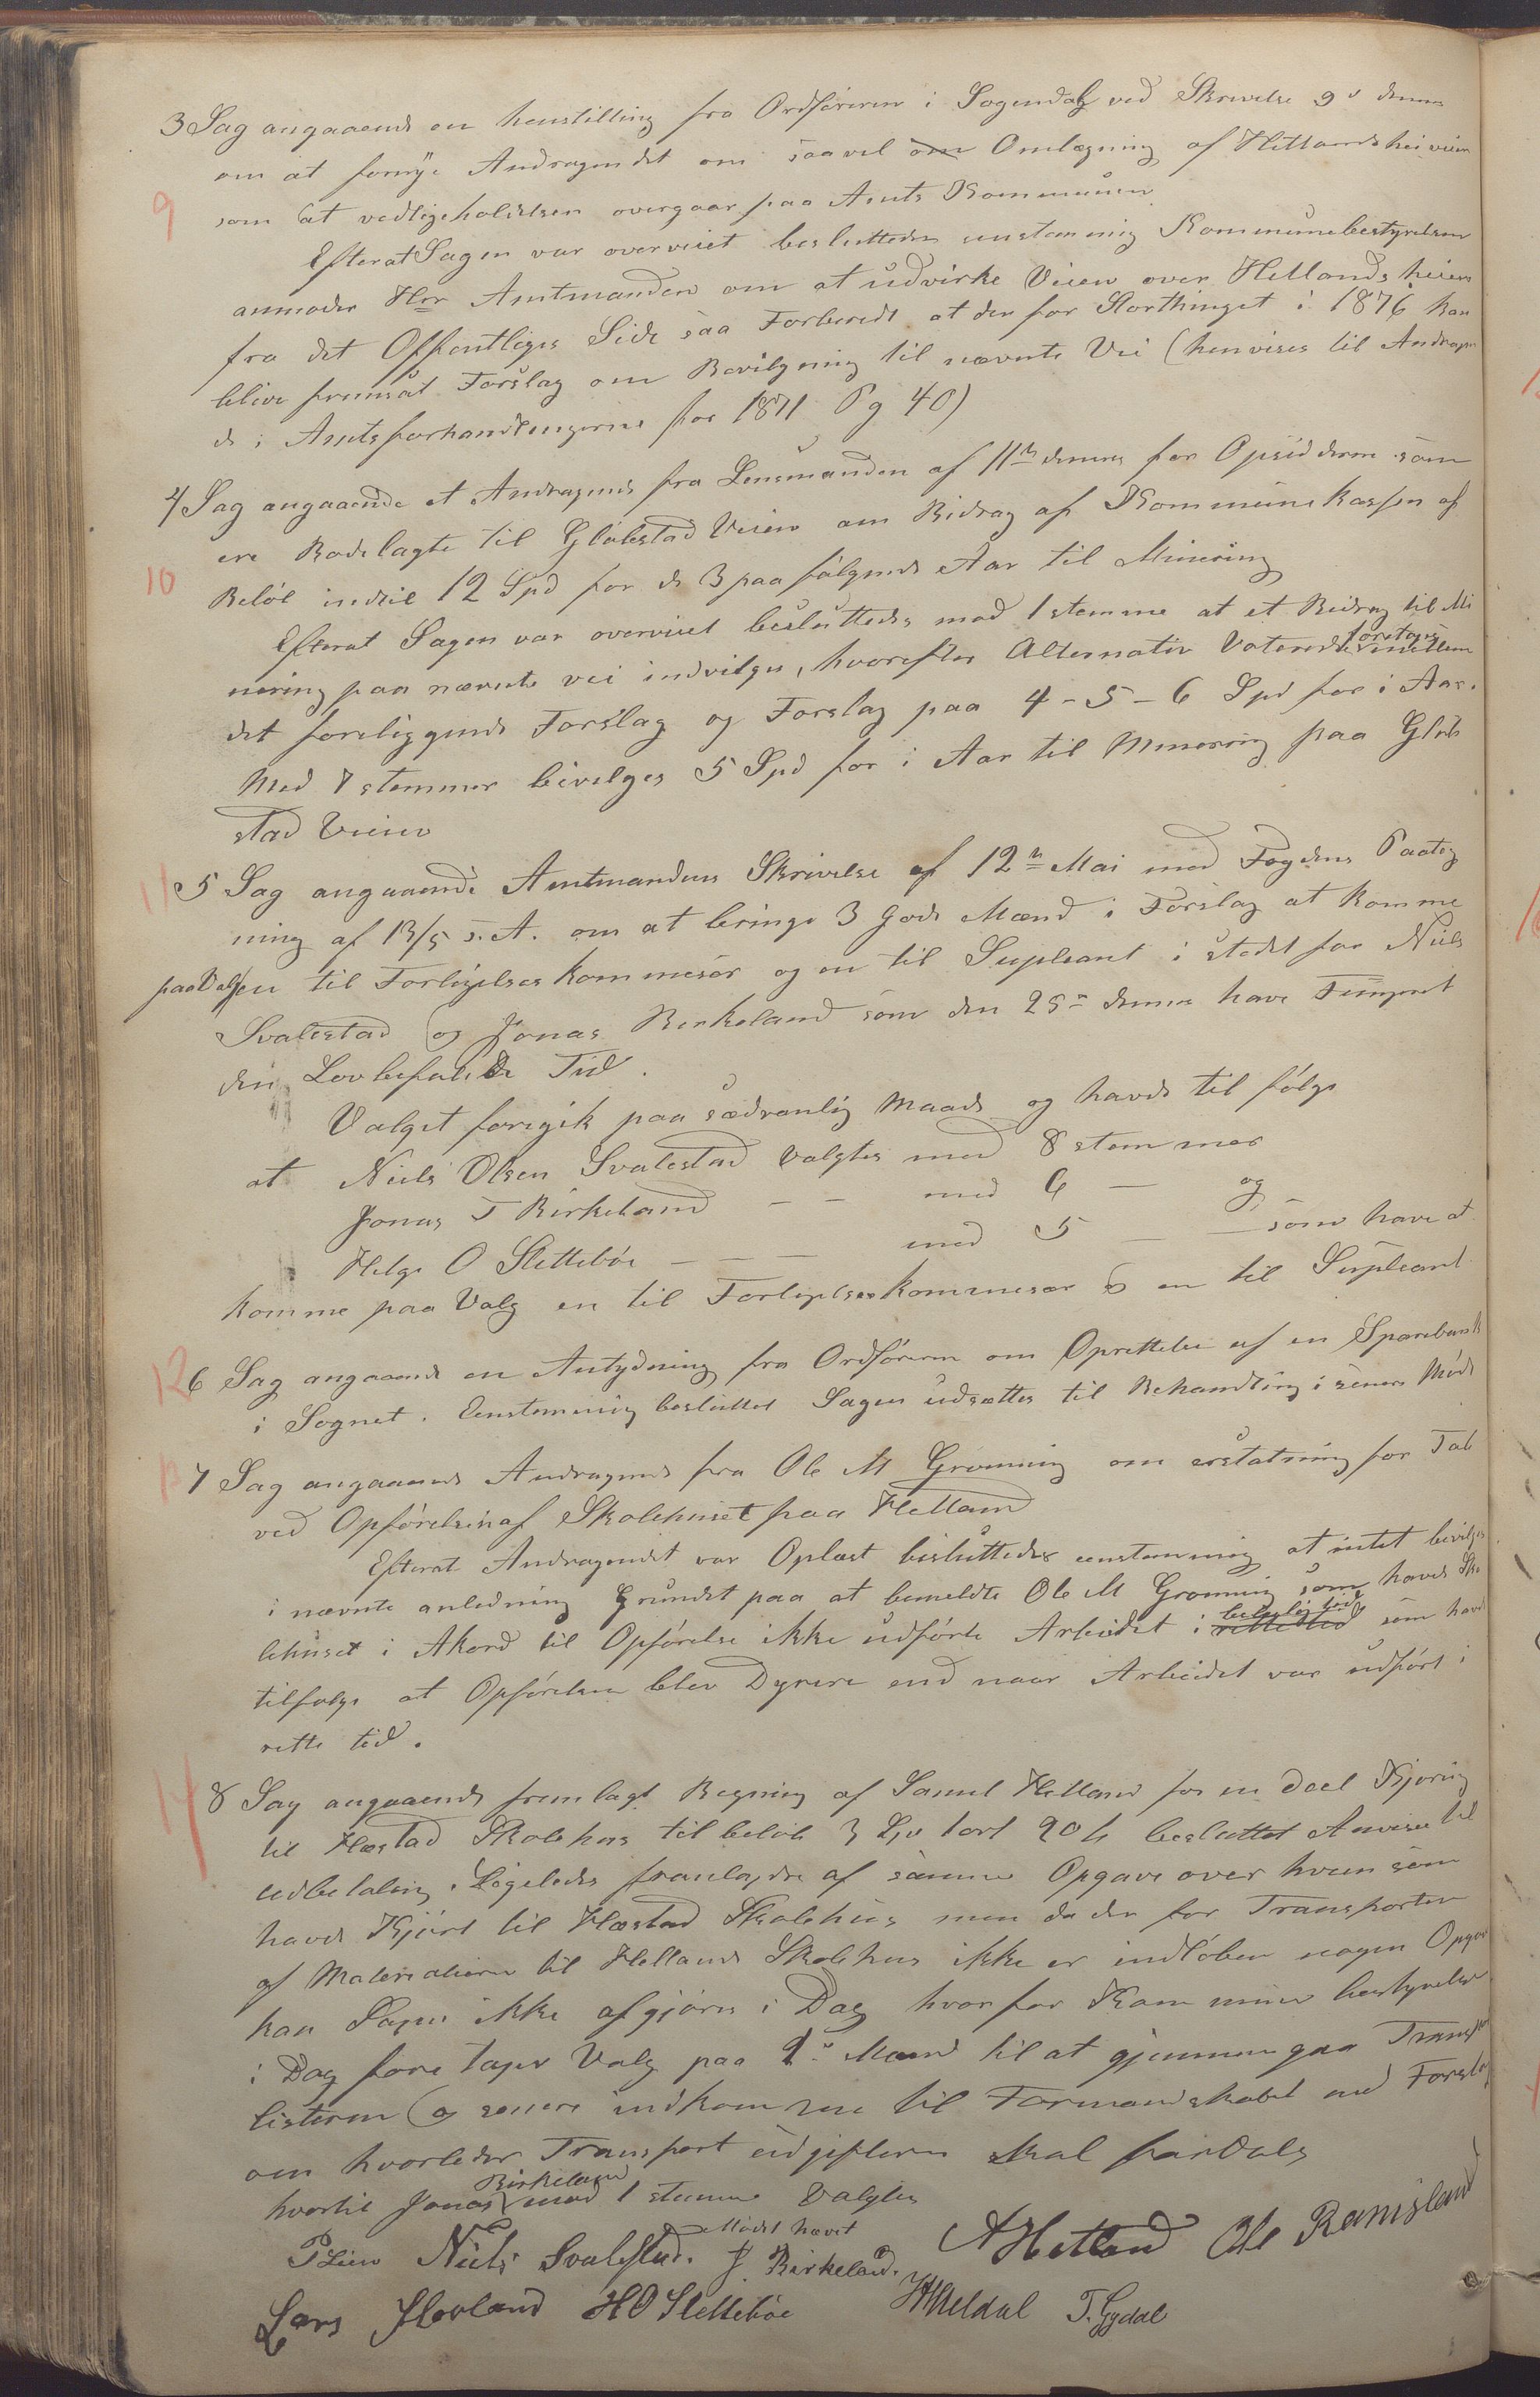 3 Sag angaaende en henstilling fra Ordföreren i Sogendal ved Skrivelse 9d dennes
om at fornye Andragendet om saavel om Omlægning af Hetlandsheiveien
9
som at vedligeholdelsen overgaar paa Amts Kommunen
Efterat Sagen var overveiet besluttedes enstemmig Kommunebestyrelsen
anmoder Hrr Amtmanden om at udvirke Veien over Hetlands heien
fra det Offentliges Side saa Forberedt at der for Storthinget i 1876 kan
blive fremsat Forslag om Bevilgning til nævnte Vei (henvises til Andragen
de i Amtsforhandlingerne for 1871 Pg 40)
4 Sag angaaende et Andragende fra Lensmanden af 11te dennes for Opsidderne som
ere Rodelagte til Glöbestad Veien om Bidrag af Kommunekassen af
10
Belöb indtil 12 Spd for de 3 paafölgende Aar til Minering
Efterat Sagen var overveiet besluttedes mod 1 stemme at et Bidrag til Mi
nering paa nævnte vei indvilges, hvorefter Alternativ Votering foretoges mellem
det foreliggende Forslag og Forslag paa 4-5-6 Spd for i Aar.
Med 7 stemmer bevilges 5 Spd for i Aar til Minering paa Glöb
stad Veien
11
5 Sag angaaende Amtmandens Skrivelse af 12te Mai med Fogdens Paateg
ning af 13/5 s.A. om at bringe 3 gode Mænd i Forslag at komme
paa Valg en til Forligelses kommesær og en til Supleant i stedet for Niels
Svalestad og Jonas Birkeland som den 25de dennes have Fungeret
den Lovbefalede Tid.
Valget foregik paa sædvanlig Maade og havde til fölge
at Niels Olsen Svalestad valgtes med 8 stemmer
Jonas T Birkeland — — med 6 — og
Helge O Sletteböe — — med 5 — — som have at
komme paa Valg en til Forligelseskommesær & en til Supleant
12
6 Sag angaaende en Antydning fra Ordföreren om Oprettelse af en Sparebank
i Sognet. Eenstemmig besluttet Sagen udsættes til Behandling i senere Möde
13
7 Sag angaaende Andragende fra Ole M Grönning om erstatning for Tab
ved Opförelsen af Skolehuset paa Hetland
Efterat Andragendet var Oplæst besluttedes eenstemmig at intet bevilges
i nævnte anledning Grundet paa at bemeldte Ole M Gronning som havde Sko
lehuset i Akord til Opförelse ikke udförte Arbeidet i rette tid beleilig tid som havde
tilfolge at Opförelsen blev Dyrere end naar Arbeidet var udfört i
rette tid.
14
8 Sag angaaende fremlagt Regning af Samuel Hetland for en deel Kjoring
til Hæstad Skolehus til belöb 3 Spd 1 ort 20 ß besluttet Anvises til
Udbetaling. Ligeledes fremlagdes af samme Opgave over hvem som
havde Kjört til Hæstad Skolehus men da der for Transporten
af Materialierne til Hetlands Skolehus ikke er indlöben nogen Opgave
kan Sagen ikke afgjöres i Dag hvorfor Kommune bestyrelsen
i Dag foretager Valg paa 1 Mand til at gjennemgaa Transport
listerne og senere indkomme til Formandskabet med Forslag
om hvorledes Transport udgifterne skal fordeles
hvortil Jonas Birkeland med 1 stemme Valgtes
Mödet hævet
P Lien Niels Svalestad. J Birkeland. A Hetland Ole Ramsland
Lars Hovland HO Sletteböe T. Gydal